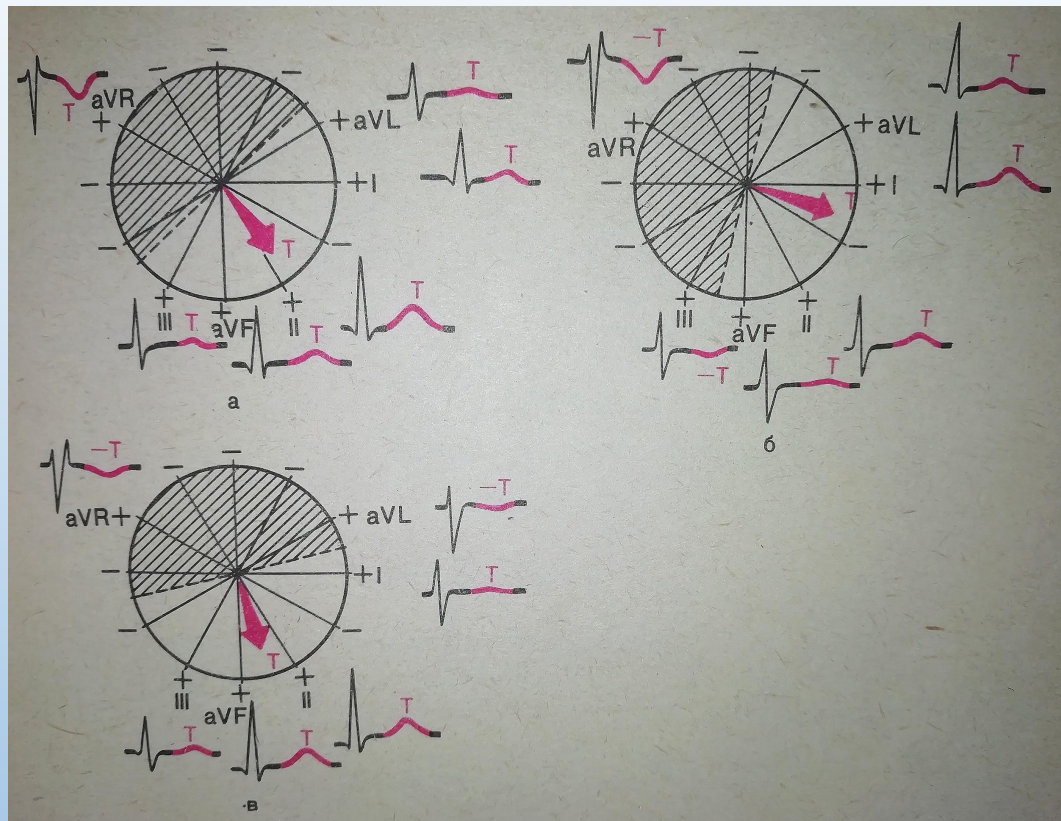 −
− −
T
aVR
+
T
+ aVL
− + I
T
T
− −
+ + +
III aVF II
T T T
а
−T
−
− −
+
aVR
T
+ aVL
− + I
T
T
− −
+ + +
III aVF II
−T T T
б
−T
−
− −
aVR +
+ aVL
−T
− + I
T
− −
T
+ + +
III aVF II
T T T
в